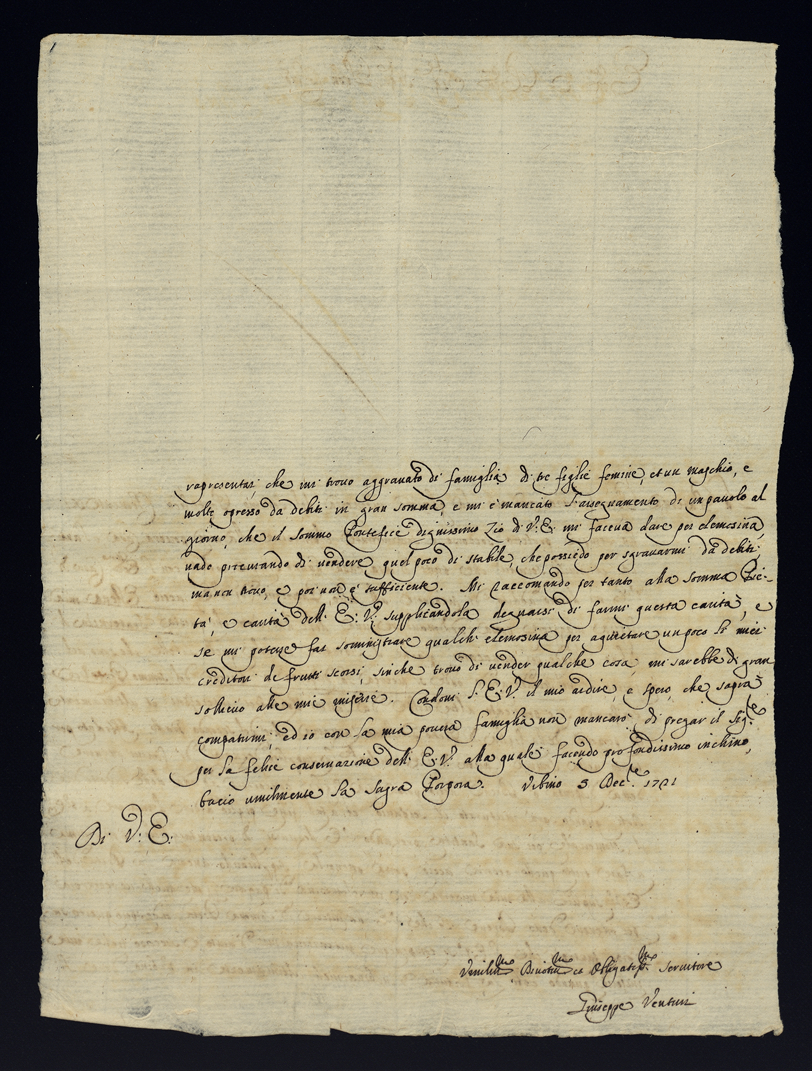 rapresentar che mi trovo aggravato di famiglia di tre figlie femine, et un maschio, e
molto opresso da debiti in gran somma, e mi è mancato l'assegnamento di un pavolo al
giorno, che il sommo Pontefice dignissimo Zio di V: E: mi faceva dare per elemosina,
vado procurando di vendere quel poco di stabile, che possiedo per sgravarmi da debiti,
ma non trovo, e poi non è sufficiente. Mi raccomando per tanto alla somma Pie-
tà, e carità dell' E: V: supplicandola degnarsi di farmi questa carità, e
se mi potesse far somministrare qualche elemosina per aquietare un poco li miei
creditori de frutti scorsi, sinche trovo di vender qualche cosa, mi sarebbe di gran
sollievo alle mie miserie. Condoni l'E: V: il mio ardire, e spero, che saprà
compatirmi, ed io con la mia povera famiglia non mancarò di pregar il Sig.re
per la felice conservazione dell' E: V: alla quale facendo profondissimo inchino,
bacio umilmente la sagra Porpora. Vrbino 3 Dec.re 1721
Di V: E:
Vmiliss.mo Devotiss.mo et Obligatiss.mo Servitore
Giuseppe Venturi